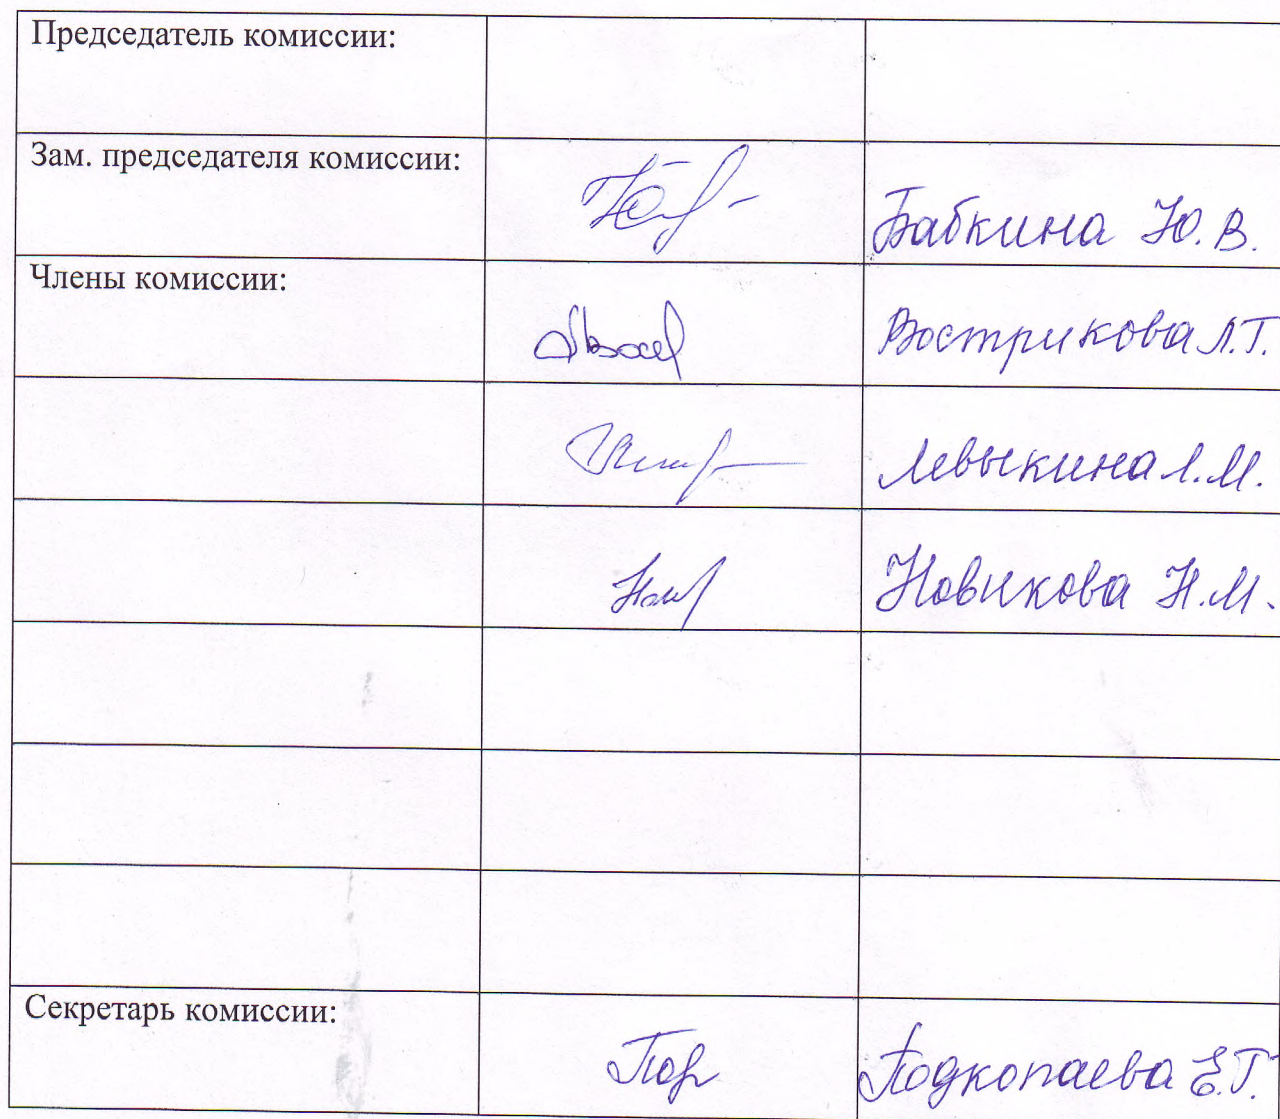 Председатель комиссии:
Зам. председателя комиссии:
Бабкина Ю.В.
Члены комиссии:
Вострикова Л.Т.
Левыкина Л.М.
Новикова Н.М.
Секретарь комиссии:
Подкопаева Е.Г.